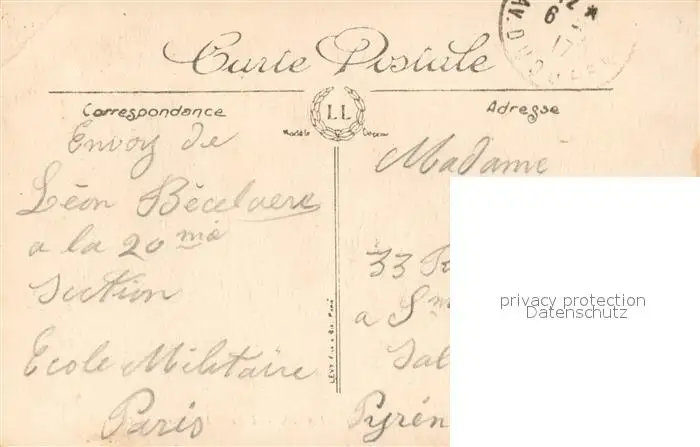 Carte Postale
Correspondance
LL
Adresse
Modèle Déposé
Envoy de
Léon Bécelaere
a la 20 me
Section
Ecole Militaire
Paris
Madame
33
a
Pyrén
LÉVY Fils & Cie Paris
6
17
privacy protection
Datenschutz